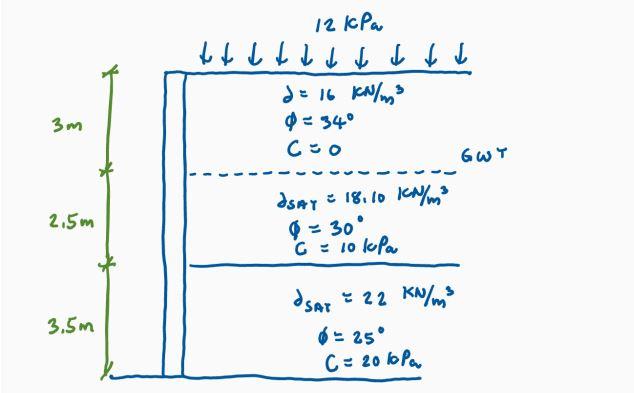 12 kPa
γ = 16 KN/m³
φ = 34°
C = 0
3m
GWT
γSAT = 18.10 KN/m³
φ = 30°
C = 10 kPa
2.5m
γSAT = 22 KN/m³
φ = 25°
C = 20 kPa
3.5m